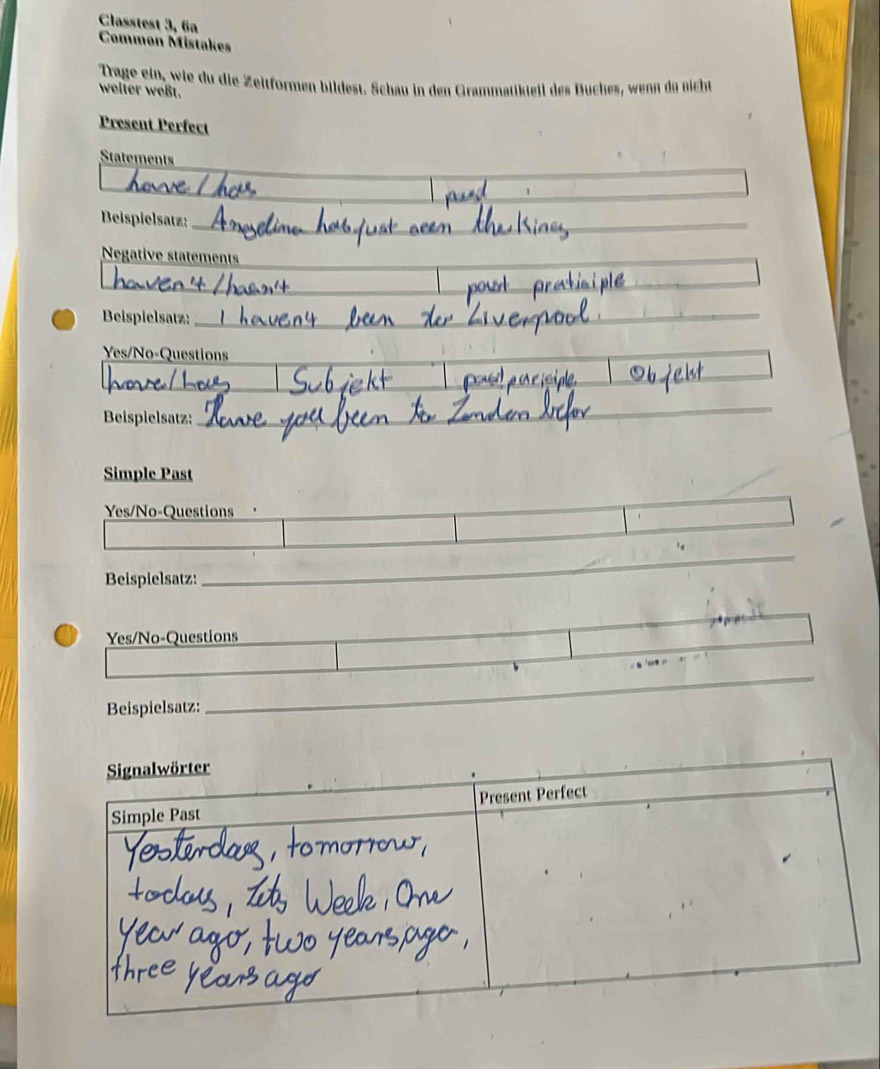 Classtest 3, 6a
Common Mistakes
Trage ein, wie du die Zeitformen bildest. Schau in den Grammatikteil des Buches, wenn du nicht
weiter weßt.
Present Perfect
Statements
have / has past
Beispielsatz: Angelina has just seen the Kings
Negative statements
haven't / hasn't past pratisiple
Beispielsatz: I haven't been der Liverpool.
Yes/No-Questions
have / has Subjekt past parisiple Objekt
Beispielsatz: Have you been to London befor
Simple Past
Yes/No-Questions
Beispielsatz:
Yes/No-Questions
Beispielsatz:
Signalwörter
Simple Past Present Perfect
Yesterday, tomorrow,
today, Week, One
year ago, two years ago,
three years ago